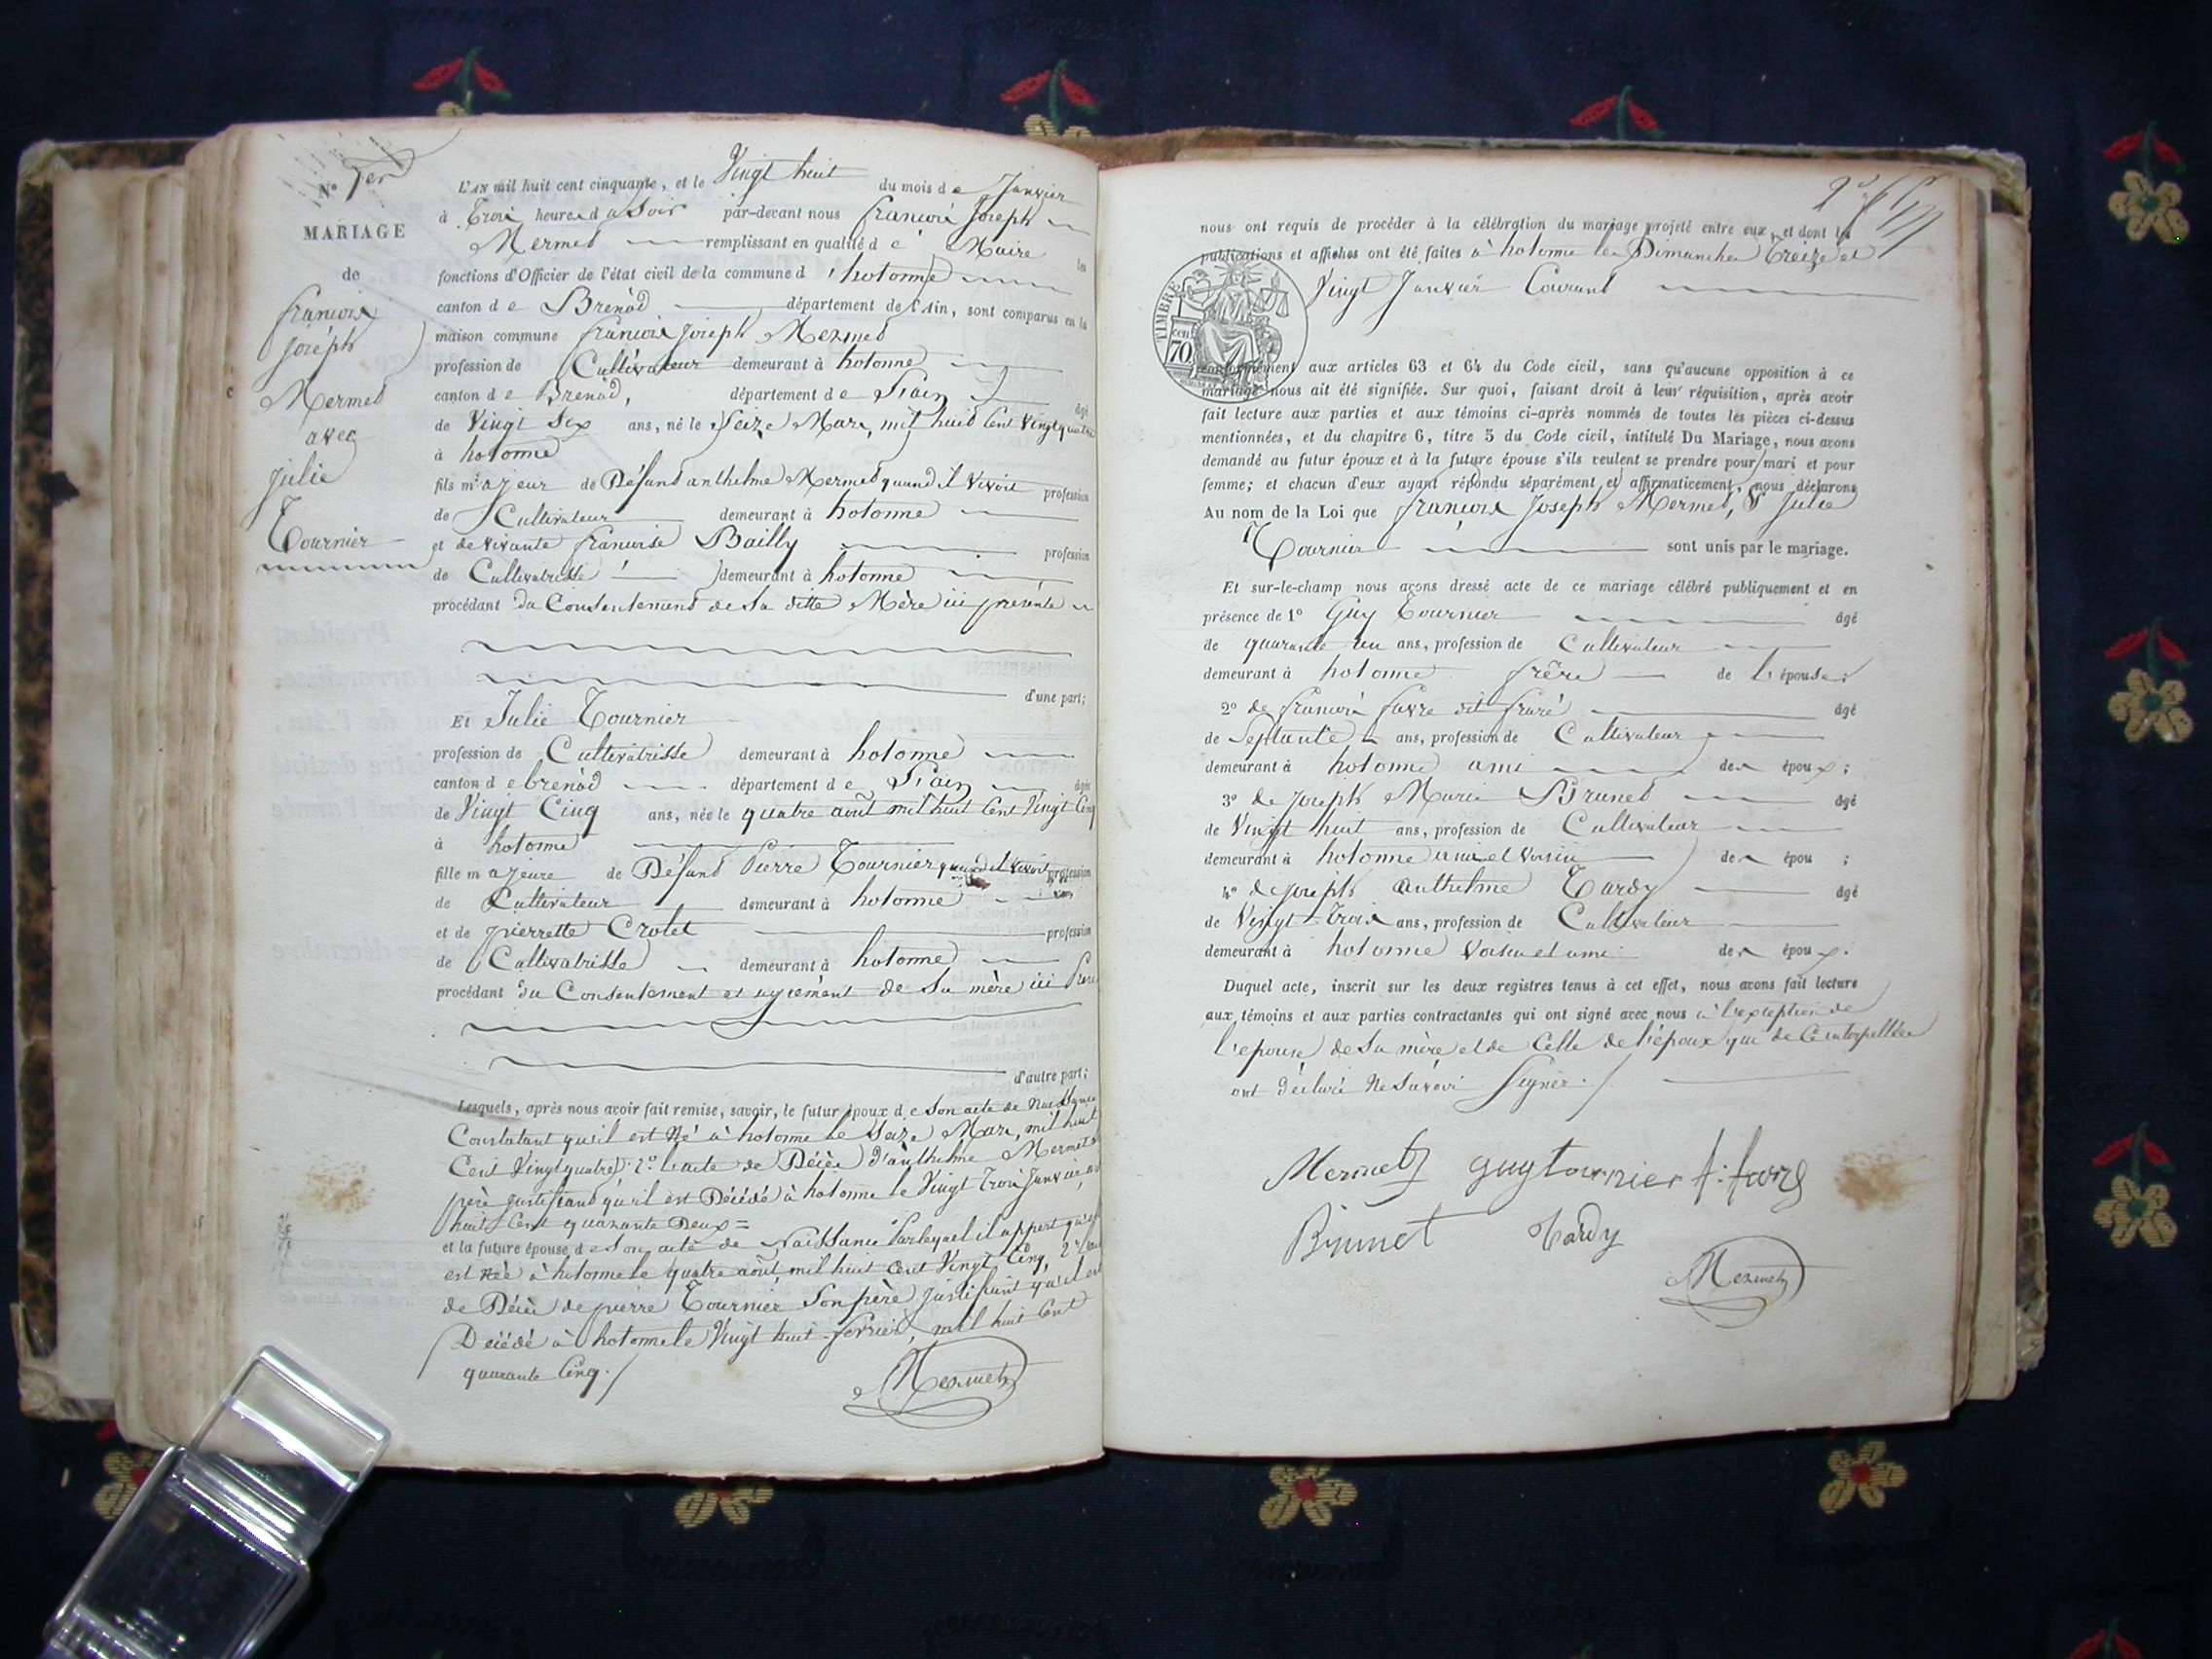 N° 1er
MARIAGE
de
francois
joseph
Mermet
avec
julie
Tournier
L'AN mil huit cent cinquante, et le Vingt huit du mois de Janvier
à Trois heures du Soir par-devant nous francois Joseph
Mermet remplissant en qualité de Maire les
fonctions d'Officier de l'état civil de la commune d'hotonne
canton de Brenod département de l'Ain, sont comparus en la
maison commune francois joseph Mermet
profession de Cultivateur demeurant à hotonne
canton de Brenod, département de L'ain âgé
de Vingt Six ans, né le Seize Mars, mil huit Cent Vingt quatre
à hotonne
fils majeur de Défunt anthelme Mermet quand il Vivoit profession
de Cultivateur demeurant à hotonne
et de vivante francoise Bailly profession
de Cultivatrisse demeurant à hotonne
procédant du Consentement de Sa ditte Mère ici présente
d'une part;
Et Julie Tournier
profession de Cultivatrisse demeurant à hotonne
canton de brenod département de L'ain âgée
de Vingt Cinq ans, née le quatre août mil huit Cent Vingt Cinq
à hotonne
fille majeure de Défunt Pierre Tournier quand il Vivoit profession
de Cultivateur demeurant à hotonne
et de pierrette Crolet profession
de Cultivatrisse demeurant à hotonne
procédant du Consentement et agrément de Sa mère ici
d'autre part;
Lesquels, après nous avoir fait remise, savoir, le futur époux de Son acte de Naissance
Constatant qu'il est Né à hotonne le Seize Mars, mil huit
Cent Vingt quatre, 2° l'acte de Décès d'anthelme Mermet
père justifiant qu'il est Décédé à hotonne le Vingt Trois Janvier
huit Cent quarante Deux =
et la future épouse de Son acte de Naissance Par lequel il appert qu'elle
est Née à hotonne le quatre août mil huit Cent Vingt Cinq, 2°
de Décès de pierre Tournier Son père justifiant qu'il est
Décédé à hotonne le Vingt huit fevrier mil huit Cent
quarante Cinq./
Mermet
nous ont requis de procéder à la célébration du mariage projeté entre eux, et dont les
publications et affiches ont été faites à hotonne les Dimanches Treize et
Vingt Janvier Courant
TIMBRE
70
conformément aux articles 63 et 64 du Code civil, sans qu'aucune opposition à ce
mariage nous ait été signifiée. Sur quoi, faisant droit à leur réquisition, après avoir
fait lecture aux parties et aux témoins ci-après nommés de toutes les pièces ci-dessus
mentionnées, et du chapitre 6, titre 5 du Code civil, intitulé Du Mariage, nous avons
demandé au futur époux et à la future épouse s'ils veulent se prendre pour mari et pour
femme; et chacun d'eux ayant répondu séparément et affirmativement, nous déclarons
Au nom de la Loi que francois Joseph Mermet, & Julie
Tournier sont unis par le mariage.
Et sur-le-champ nous avons dressé acte de ce mariage célébré publiquement et en
présence de 1° Guy Tournier âgé
de quarante un ans, profession de Cultivateur
demeurant à hotonne frère de L'épouse;
2° de francois favre dit âgé
de Septante ans, profession de Cultivateur
demeurant à hotonne ami des époux;
3° de joseph Marie Brunet âgé
de Vingt huit ans, profession de Cultivateur
demeurant à hotonne ami et Voisin des épou ;
4° de joseph anthelme Tardy âgé
de Vingt Trois ans, profession de Cultivateur
demeurant à hotonne Voisin et ami des époux.
Duquel acte, inscrit sur les deux registres tenus à cet effet, nous avons fait lecture
aux témoins et aux parties contractantes qui ont signé avec nous à l'exception de
l'epouse de Sa mère et de Celle de l'époux qui de Ce interpellées
ont déclaré Ne Savoir Signer./
Mermet guy tournier f. favre
Brunet Tardy
Mermet